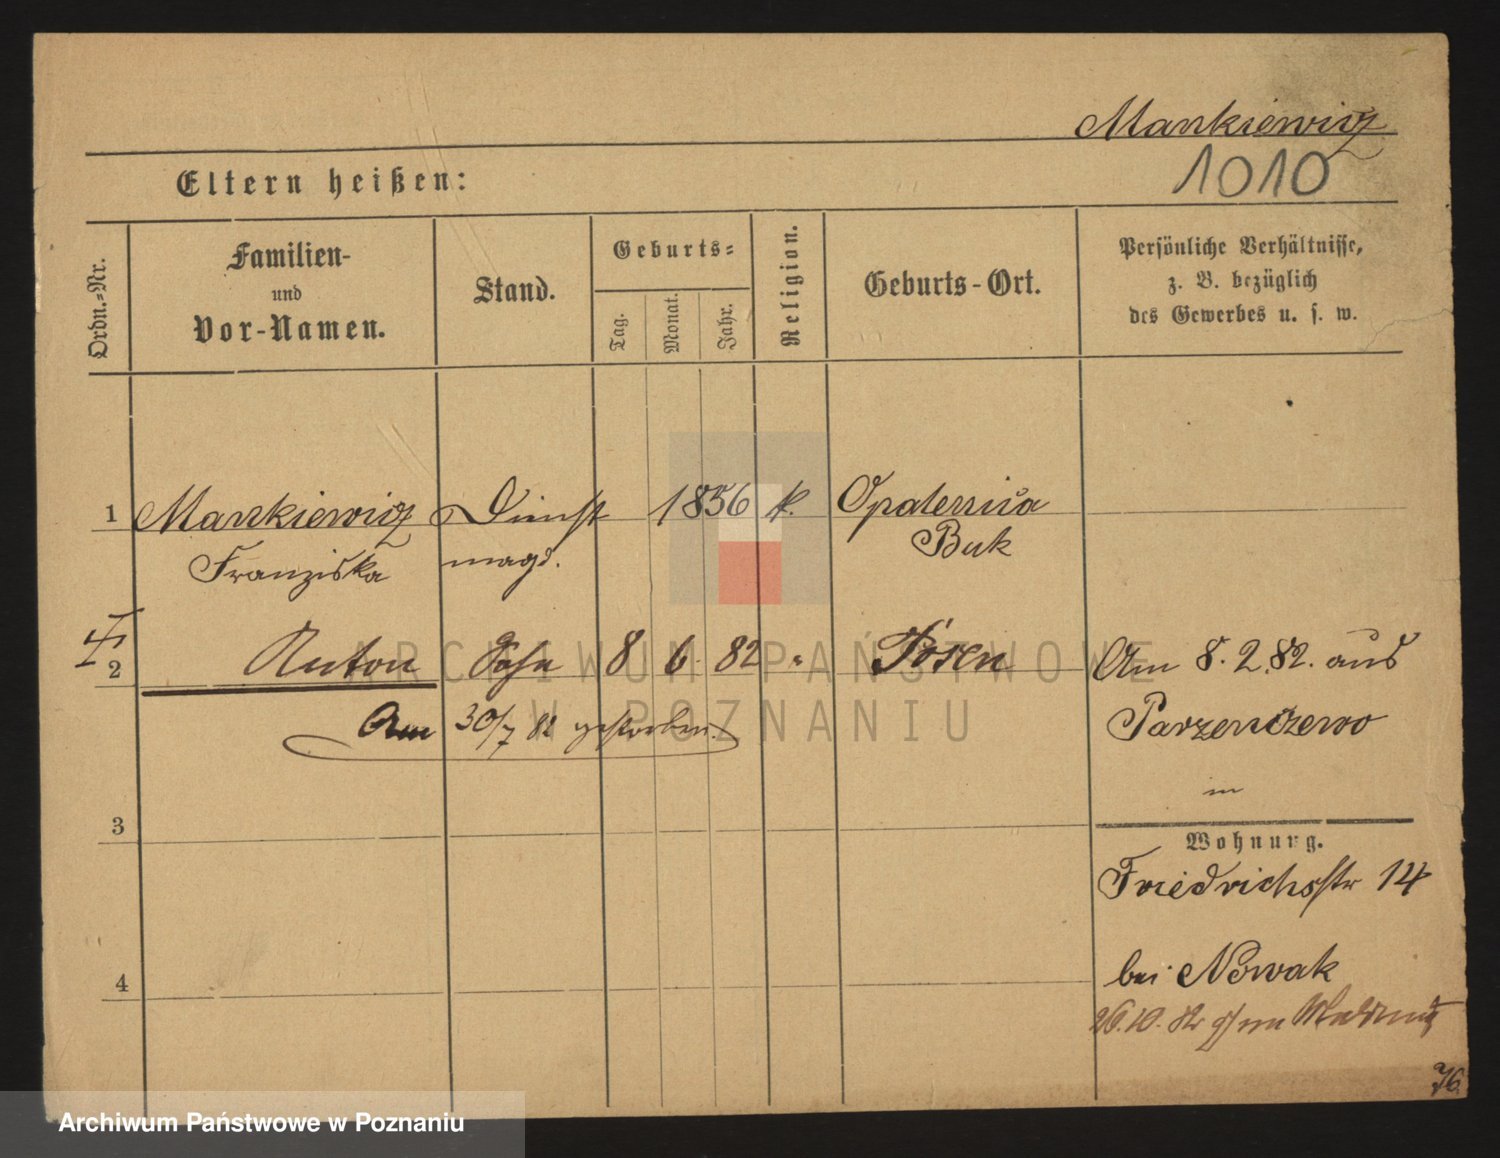 Mankiewicz
1010
Eltern heißen:
Ordn.-Nr.
Familien-
und
Vor-Namen.
Stand.
Geburts-
Tag.
Monat.
Jahr.
Religion.
Geburts-Ort.
Persönliche Verhältnisse,
z. B. bezüglich
des Gewerbes u. s. w.
1 Mankiewicz Dienst 1856 k. Opalenica
Franziska magd. Buk
2 Anton Sohn 8 6. 82 " Posen
Am 30/7 82 gestorben.
Am 8. 2. 82. aus
Parzenczewo
in
3
Wohnung.
Friedrichsstr 14
4
bei Nowak
26.10. 82
76
ARCHIWUM PAŃSTWOWE
W POZNANIU
Archiwum Państwowe w Poznaniu